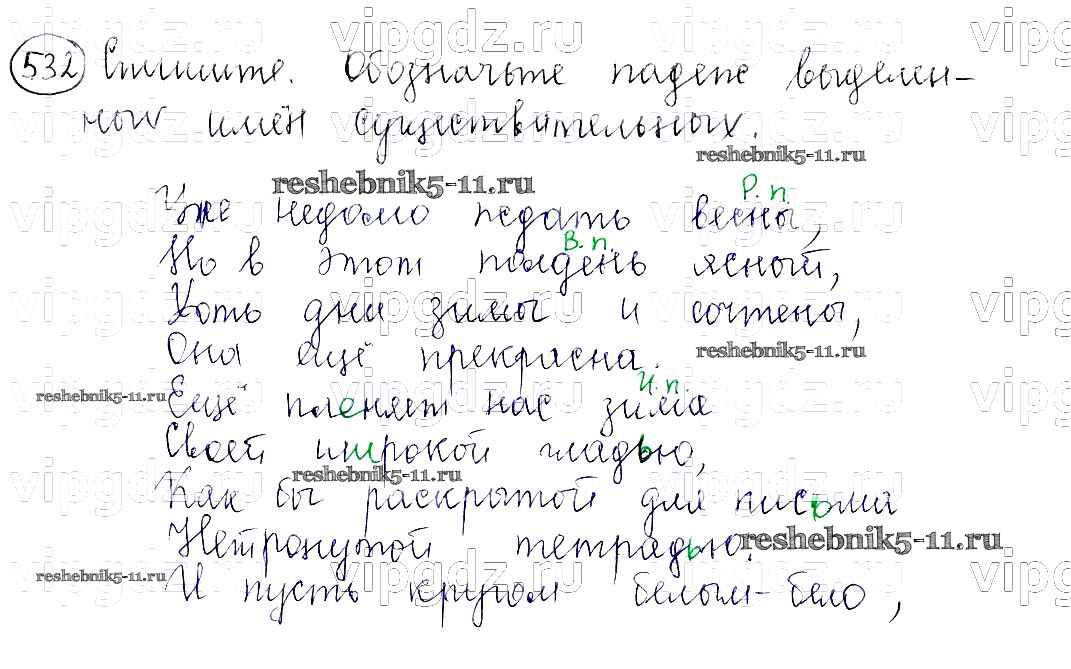 532 Спишите. Обозначьте падеж выделен-
ных имён существительных.
Р. п.
Уже недолго ждать весны,
В. п.
Но в этот полдень ясный,
Хоть дни зимы и сочтены,
Она ещё прекрасна.
И. п.
Ещё пленяет нас зима
Своей широкой гладью,
Как бы раскрытой для письма
Нетронутой тетрадью.
И пусть кругом белым-бело,
vipgdz.ru
reshebnik5-11.ru